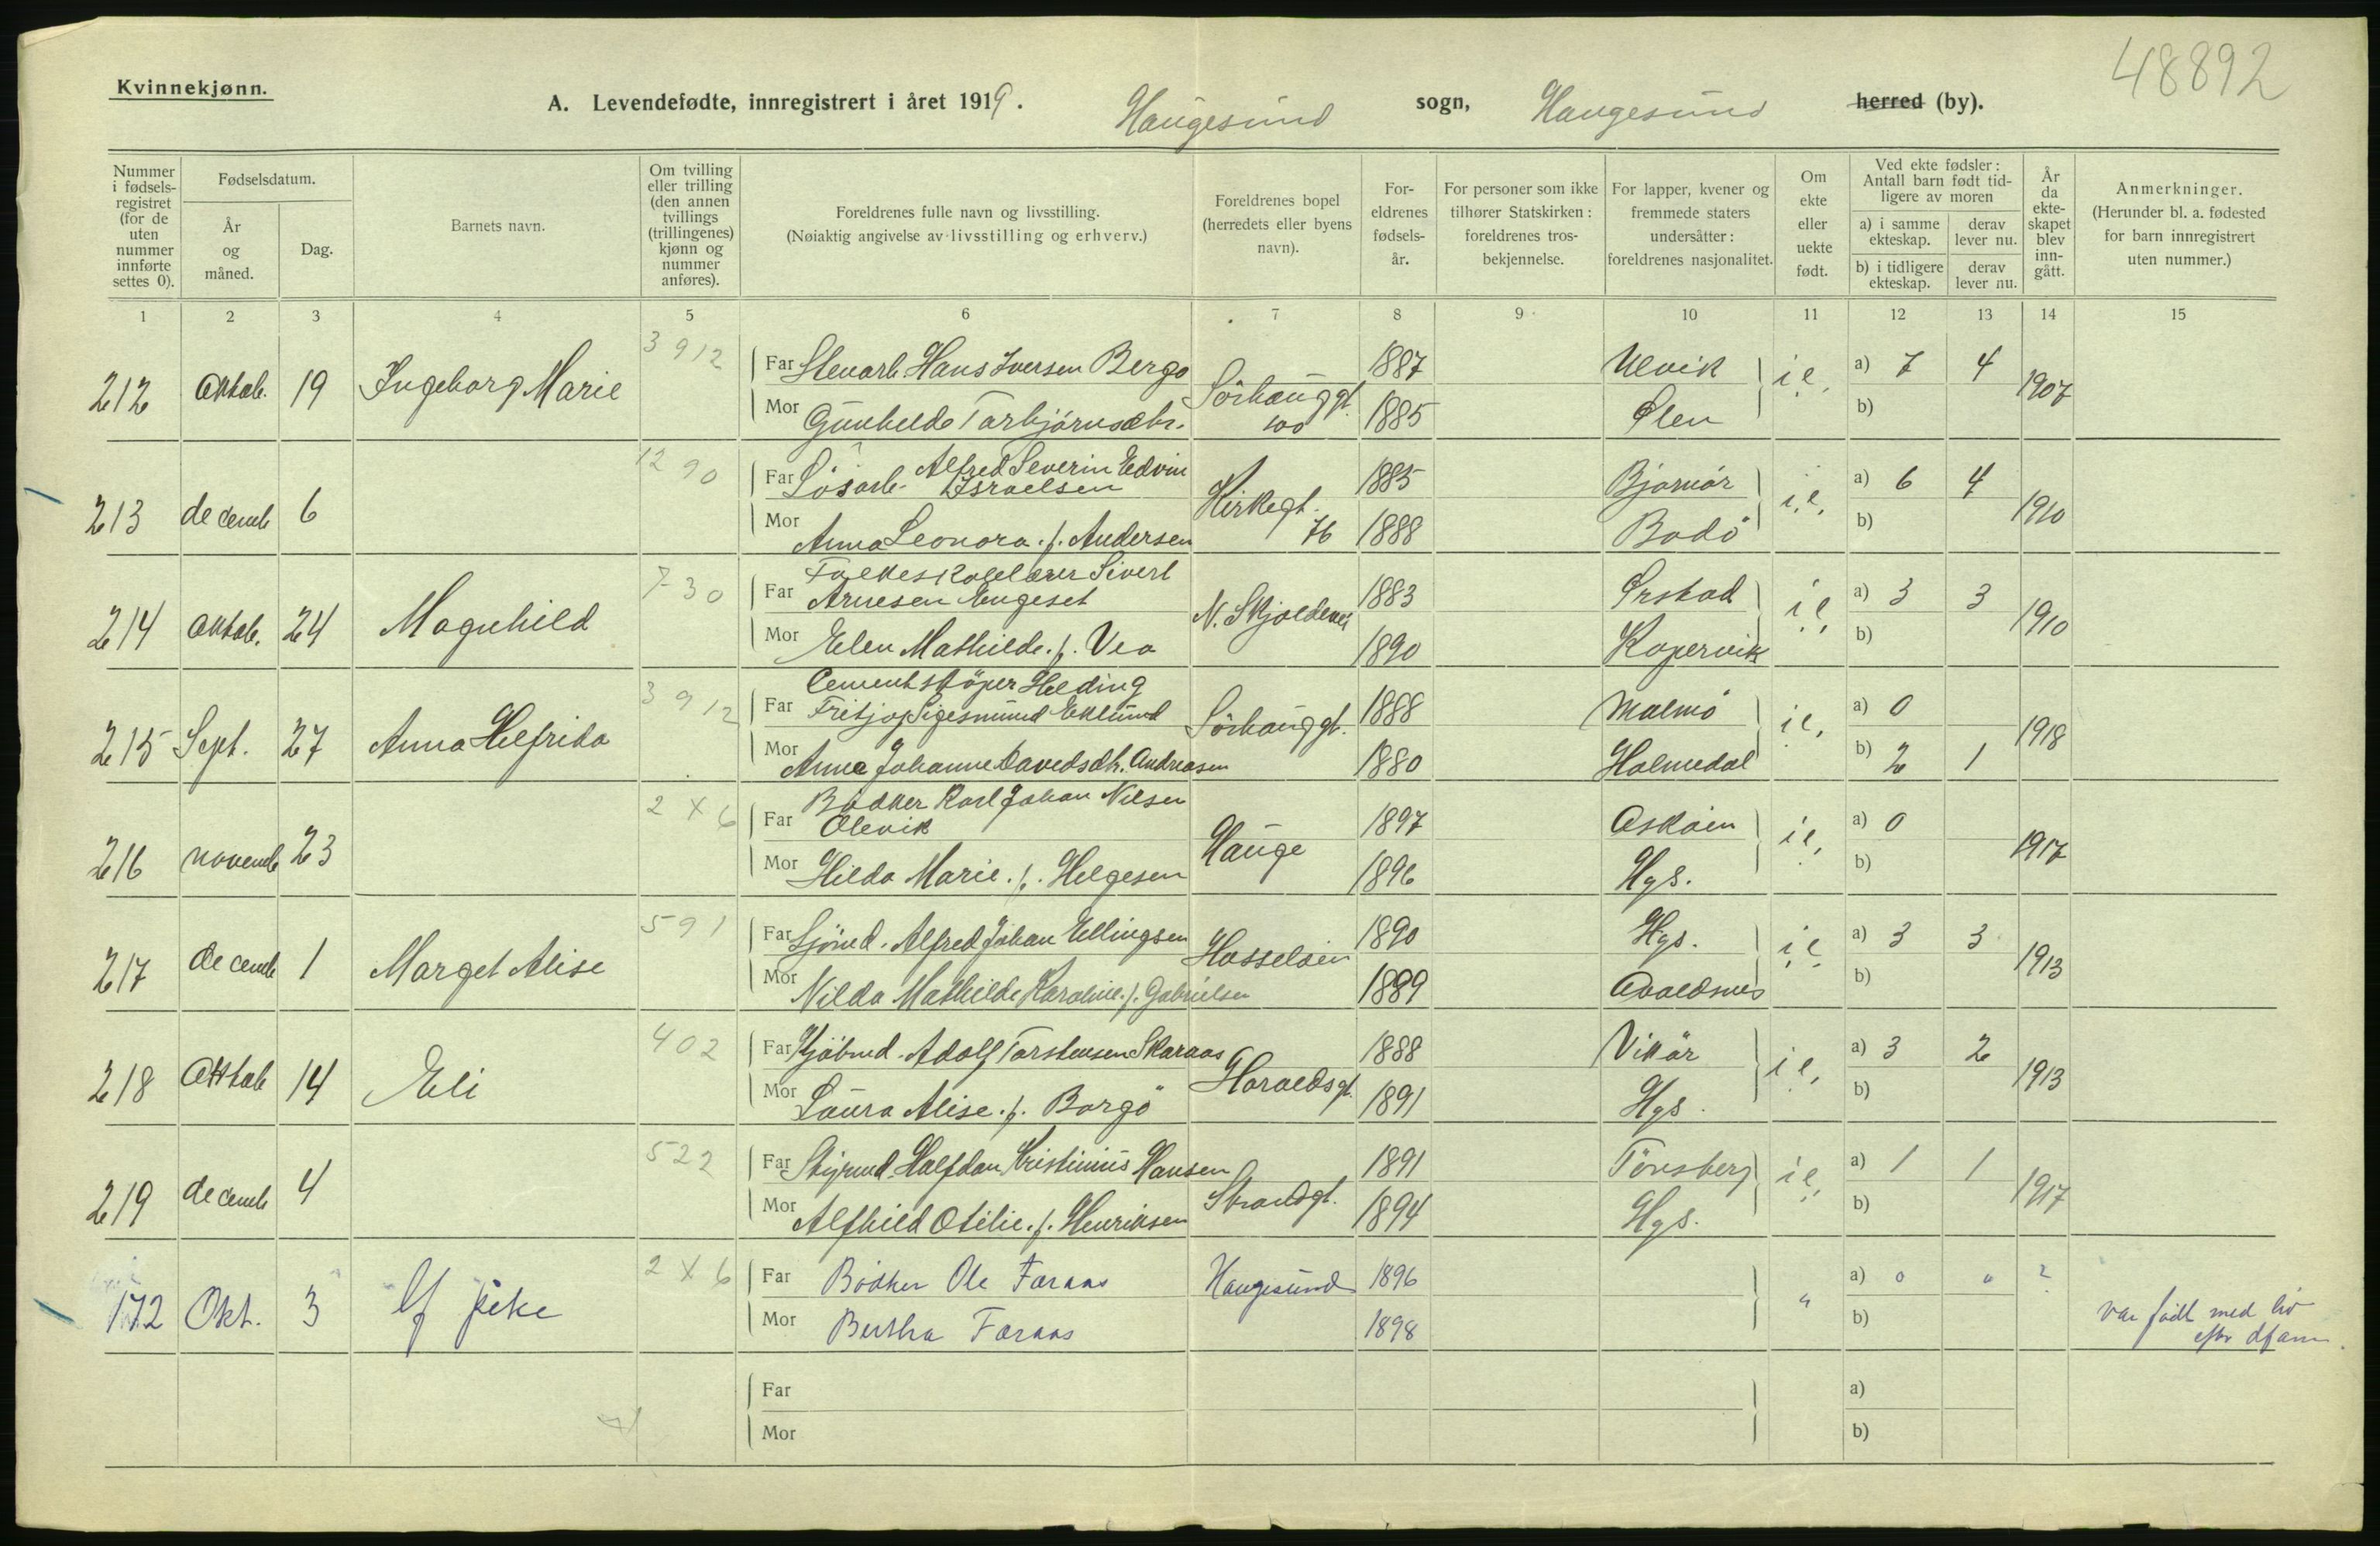 48892
Kvinnekjønn.
A. Levendefødte, innregistrert i året 1919. Haugesund sogn, Haugesund herred (by).
Nummer i fødsels-registret (for de uten nummer innførte settes 0).
Fødselsdatum.
År og måned.
Dag.
Barnets navn.
Om tvilling eller trilling (den annen tvillings (trillingenes) kjønn og nummer anføres).
Foreldrenes fulle navn og livsstilling.
(Nøiaktig angivelse av livsstilling og erhverv.)
Foreldrenes bopel (herredets eller byens navn).
For-eldrenes fødsels-år.
For personer som ikke tilhører Statskirken: foreldrenes tros-bekjennelse.
For lapper, kvener og fremmede staters undersåtter: foreldrenes nasjonalitet.
Om ekte eller uekte født.
Ved ekte fødsler: Antall barn født tid-ligere av moren
a) i samme ekteskap.
derav lever nu.
b) i tidligere ekteskap.
derav lever nu.
År da ekte-skapet blev inn-gått.
Anmerkninger.
(Herunder bl. a. fødested for barn innregistrert uten nummer.)
1 2 3 4 5 6 7 8 9 10 11 12 13 14 15
3 912
212 Oktob. 19 Ingeborg Marie Far Stenarb. Hans Iversen Bergo Sörhauggt. 100 1887 Ulvik i.e. a) 7 4 1907
Mor Gunhilde Torbjörnsdtr. 1885 Ølen b)
12 90
213 decemb 6 Far Lösarb. Alfred Severin Edvin Israelsen Kirkegt. 76 1885 i.e. a) 6 4 1910
Mor Anna Leonora. f. Andersen 1888 Bodö b)
7 30
214 Oktob. 24 Magnhild Far Folkeskolelærer Sivert Arnesen Engeset N. Skjoldevei 1883 Ørskod i.e. a) 3 3 1910
Mor Elen Mathilde. f. Vea 1890 Kopervik b)
3 912
215 Sept. 27 Anna Helfrida Far Cementstöper Helding Fritjof Sigesmund Eklund Sörhauggt. 1888 Malmö i.e. a) 0 1918
Mor Anna Johanne Davidsdtr. Andreasen 1880 Holmedal b) 2 1
2 X 6
216 novemb 23 Far Bödker Karl Johan Nilsen Olevik Hauge 1897 Asköien i.e. a) 0 1917
Mor Hilda Marie. f. Helgesen 1896 Hgs. b)
591
217 decemb 1 Marget Alise Far Sjömd. Alfred Johan Ellingsen Hasselöien 1890 Hgs. i.e. a) 3 3 1913
Mor Nilda Mathilde Karoline. f. Gabrielsen 1889 Avaldsnes b)
402
218 Oktob 14 Eli Far Kjöbmd. Adolf Torstensen Skaraas Haraldsgt. 1888 Vikör i.e. a) 3 2 1913
Mor Laura Alise. f. Borgö 1891 Hgs. b)
522
219 decemb 4 Far Styrmd. Halfdan Kristinius Hansen Strandgt. 1891 Tönsberg i.e. a) 1 1 1917
Mor Alfhild Otilie. f. Henriksen 1894 Hgs. b)
2 X 6
172 Okt. 3 pike Far Bödker Ole Faraas Haugesund 1896 " a) 0 " ? var född med liv
Mor Bertha Faraas 1898 b) efter dfanm.
Far a)
Mor b)